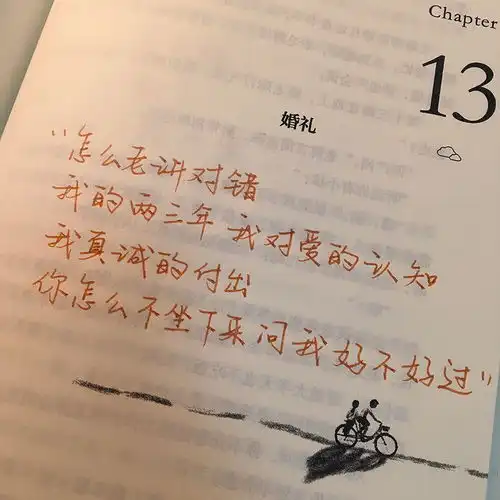 Chapter
13
婚礼
“怎么老讲对错
我的两三年 我对爱的认知
我真诚的付出
你怎么不坐下来问我好不好过”